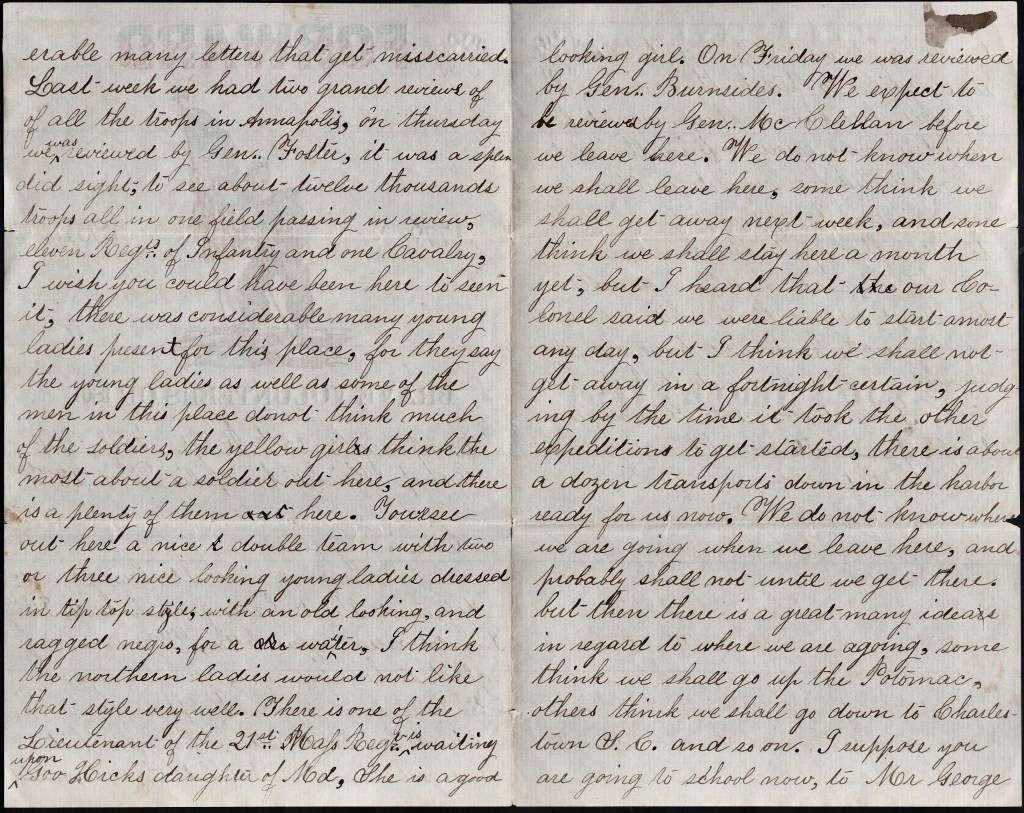 erable many letters that get misscarried.
Last week we had two grand reviews of
of all the troops in Annapolis, on thursday
we was reviewed by Gen.. Foster, it was a splen
did sight, to see about twelve thousands
troops all in one field passing in review,
eleven Regts. of Infantry and one Cavalry,
I wish you could have been here to seen
it, there was considerable many young
ladies present for this place, for they say
the young ladies as well as some of the
men in this place donot think much
of the soldiers, the yellow girls think the
most about a soldier out here, and there
is a plenty of them out here. You see
out here a nice t double team with two
or three nice looking young ladies dressed
in tip top style, with an old looking, and
ragged negro, for a wa't'er, I think
the northern ladies would not like
that style very well. There is one of the
Lieutenant of the 21st. Mass Regt. v is waiting
upon Gov Hicks daughter of Md, She is a good
looking girl. On Friday we was reviewed
by Gen.. Burnsides. We expect to
be reviewed by Gen.. Mc Clellan before
we leave here. We do not know when
we shall leave here, some think we
shall get away next week, and some
think we shall stay here a month
yet, but I heard that the our Co-
lonel said we were liable to start amost
any day, but I think we shall not
get away in a fortnight certain, judg-
ing by the time it took the other
expeditions to get started, there is about
a dozen transports down in the harbor
ready for us now. We do not know where
we are going when we leave here, and
probably shall not until we get there.
but then there is a great many ideas
in regard to where we are agoing, some
think we shall go up the Potomac,
others think we shall go down to Charles-
town S. C. and so on. I suppose you
are going to school now, to Mr George